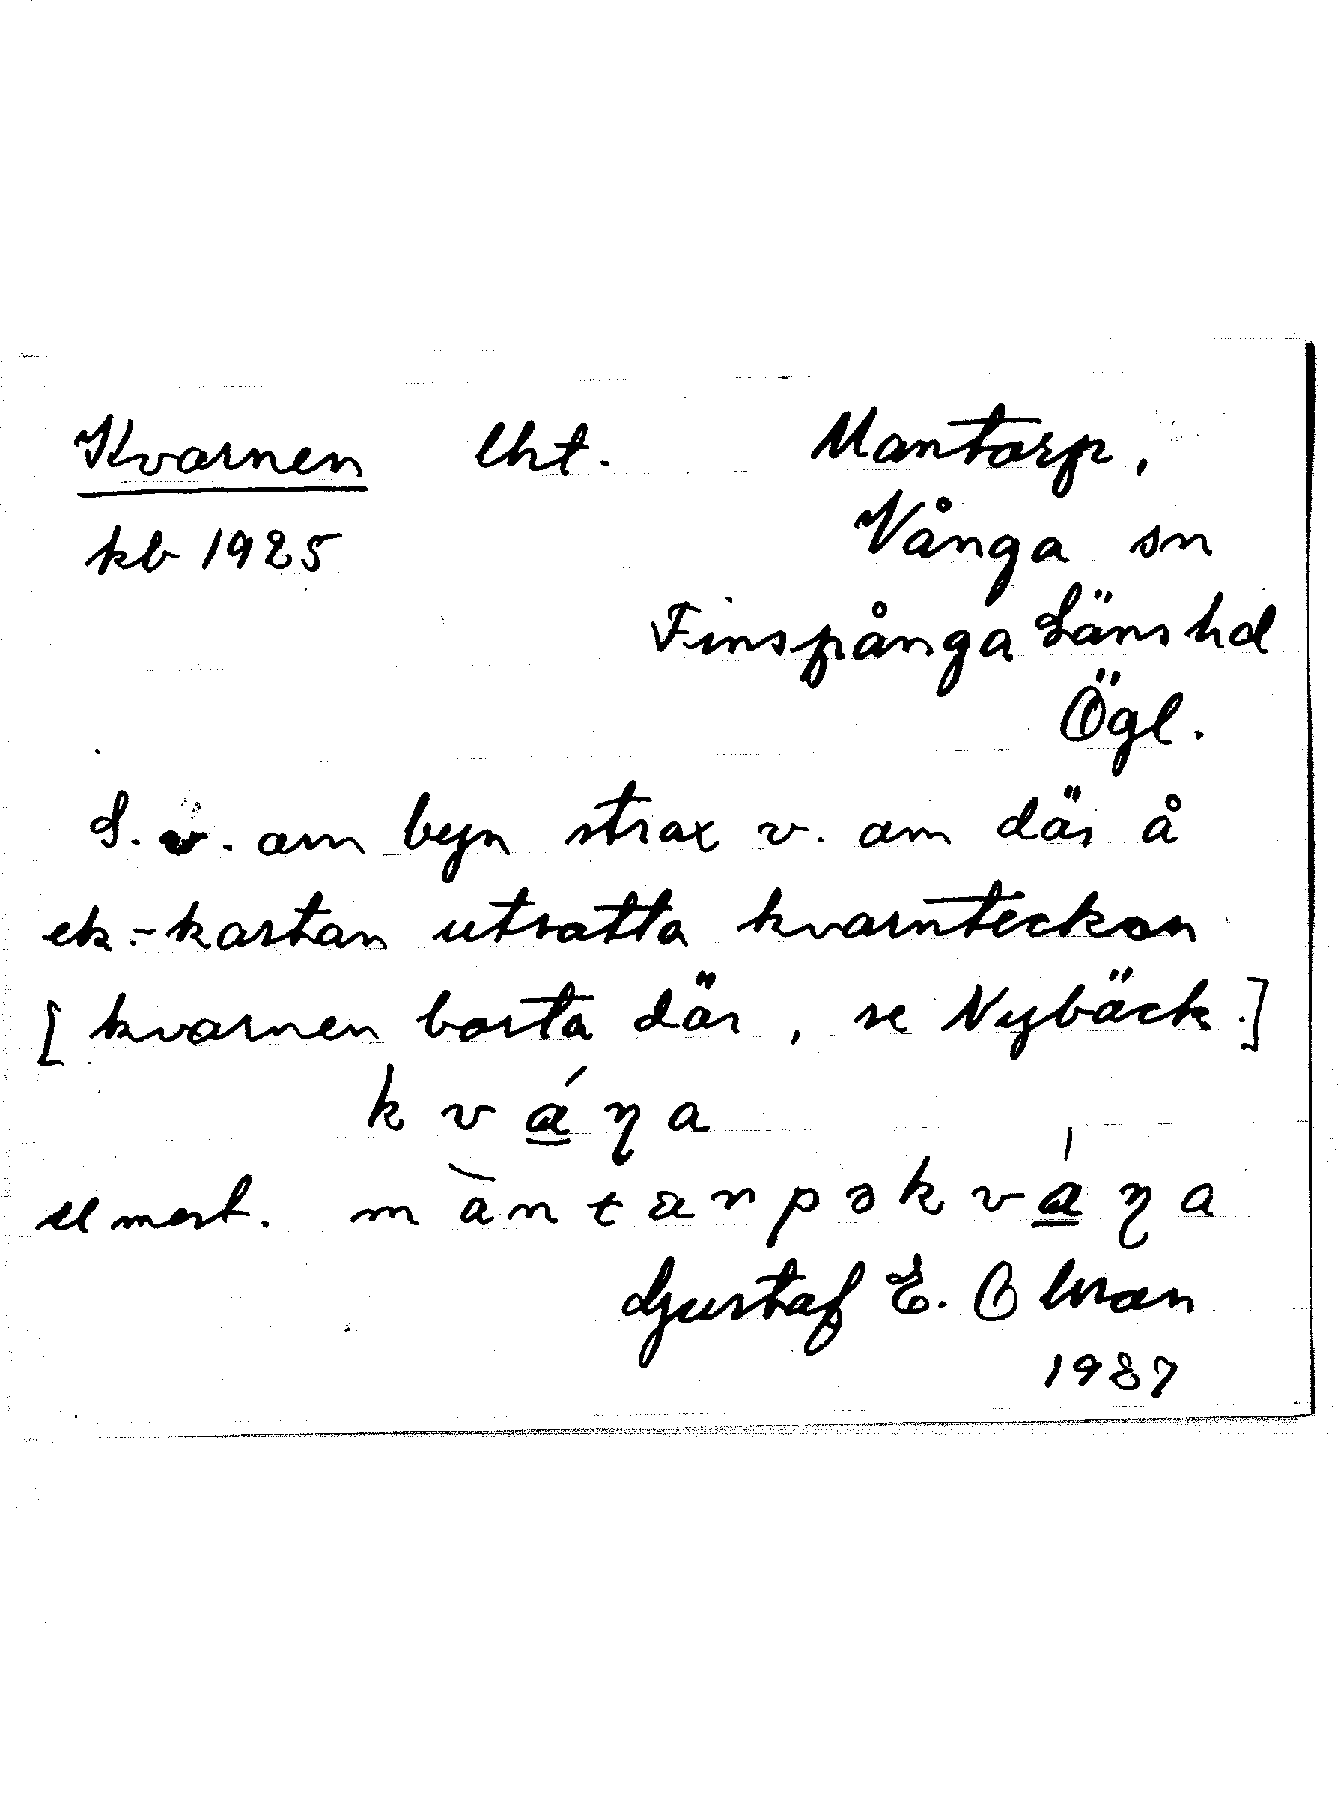 Kvarnen lht. Mantorp,
kb 1925 Vånga sn
Finspånga Läns hd
Ögl.
S. v. om byn strax v. om där å
ek.-kartan utsatta kvarntecken
[kvarnen borta där, se Nybäck.]
k v á ŋ a
el mest. m à n t a r p ə k v á ŋ a
Gustaf E. Olman
1937